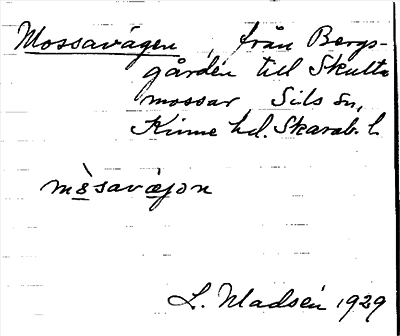 Mossavägen, från Bergs-
gården till Skulta
mossar, Sils sn,
Kinne hd. Skarab. l.
L. Madsén 1929